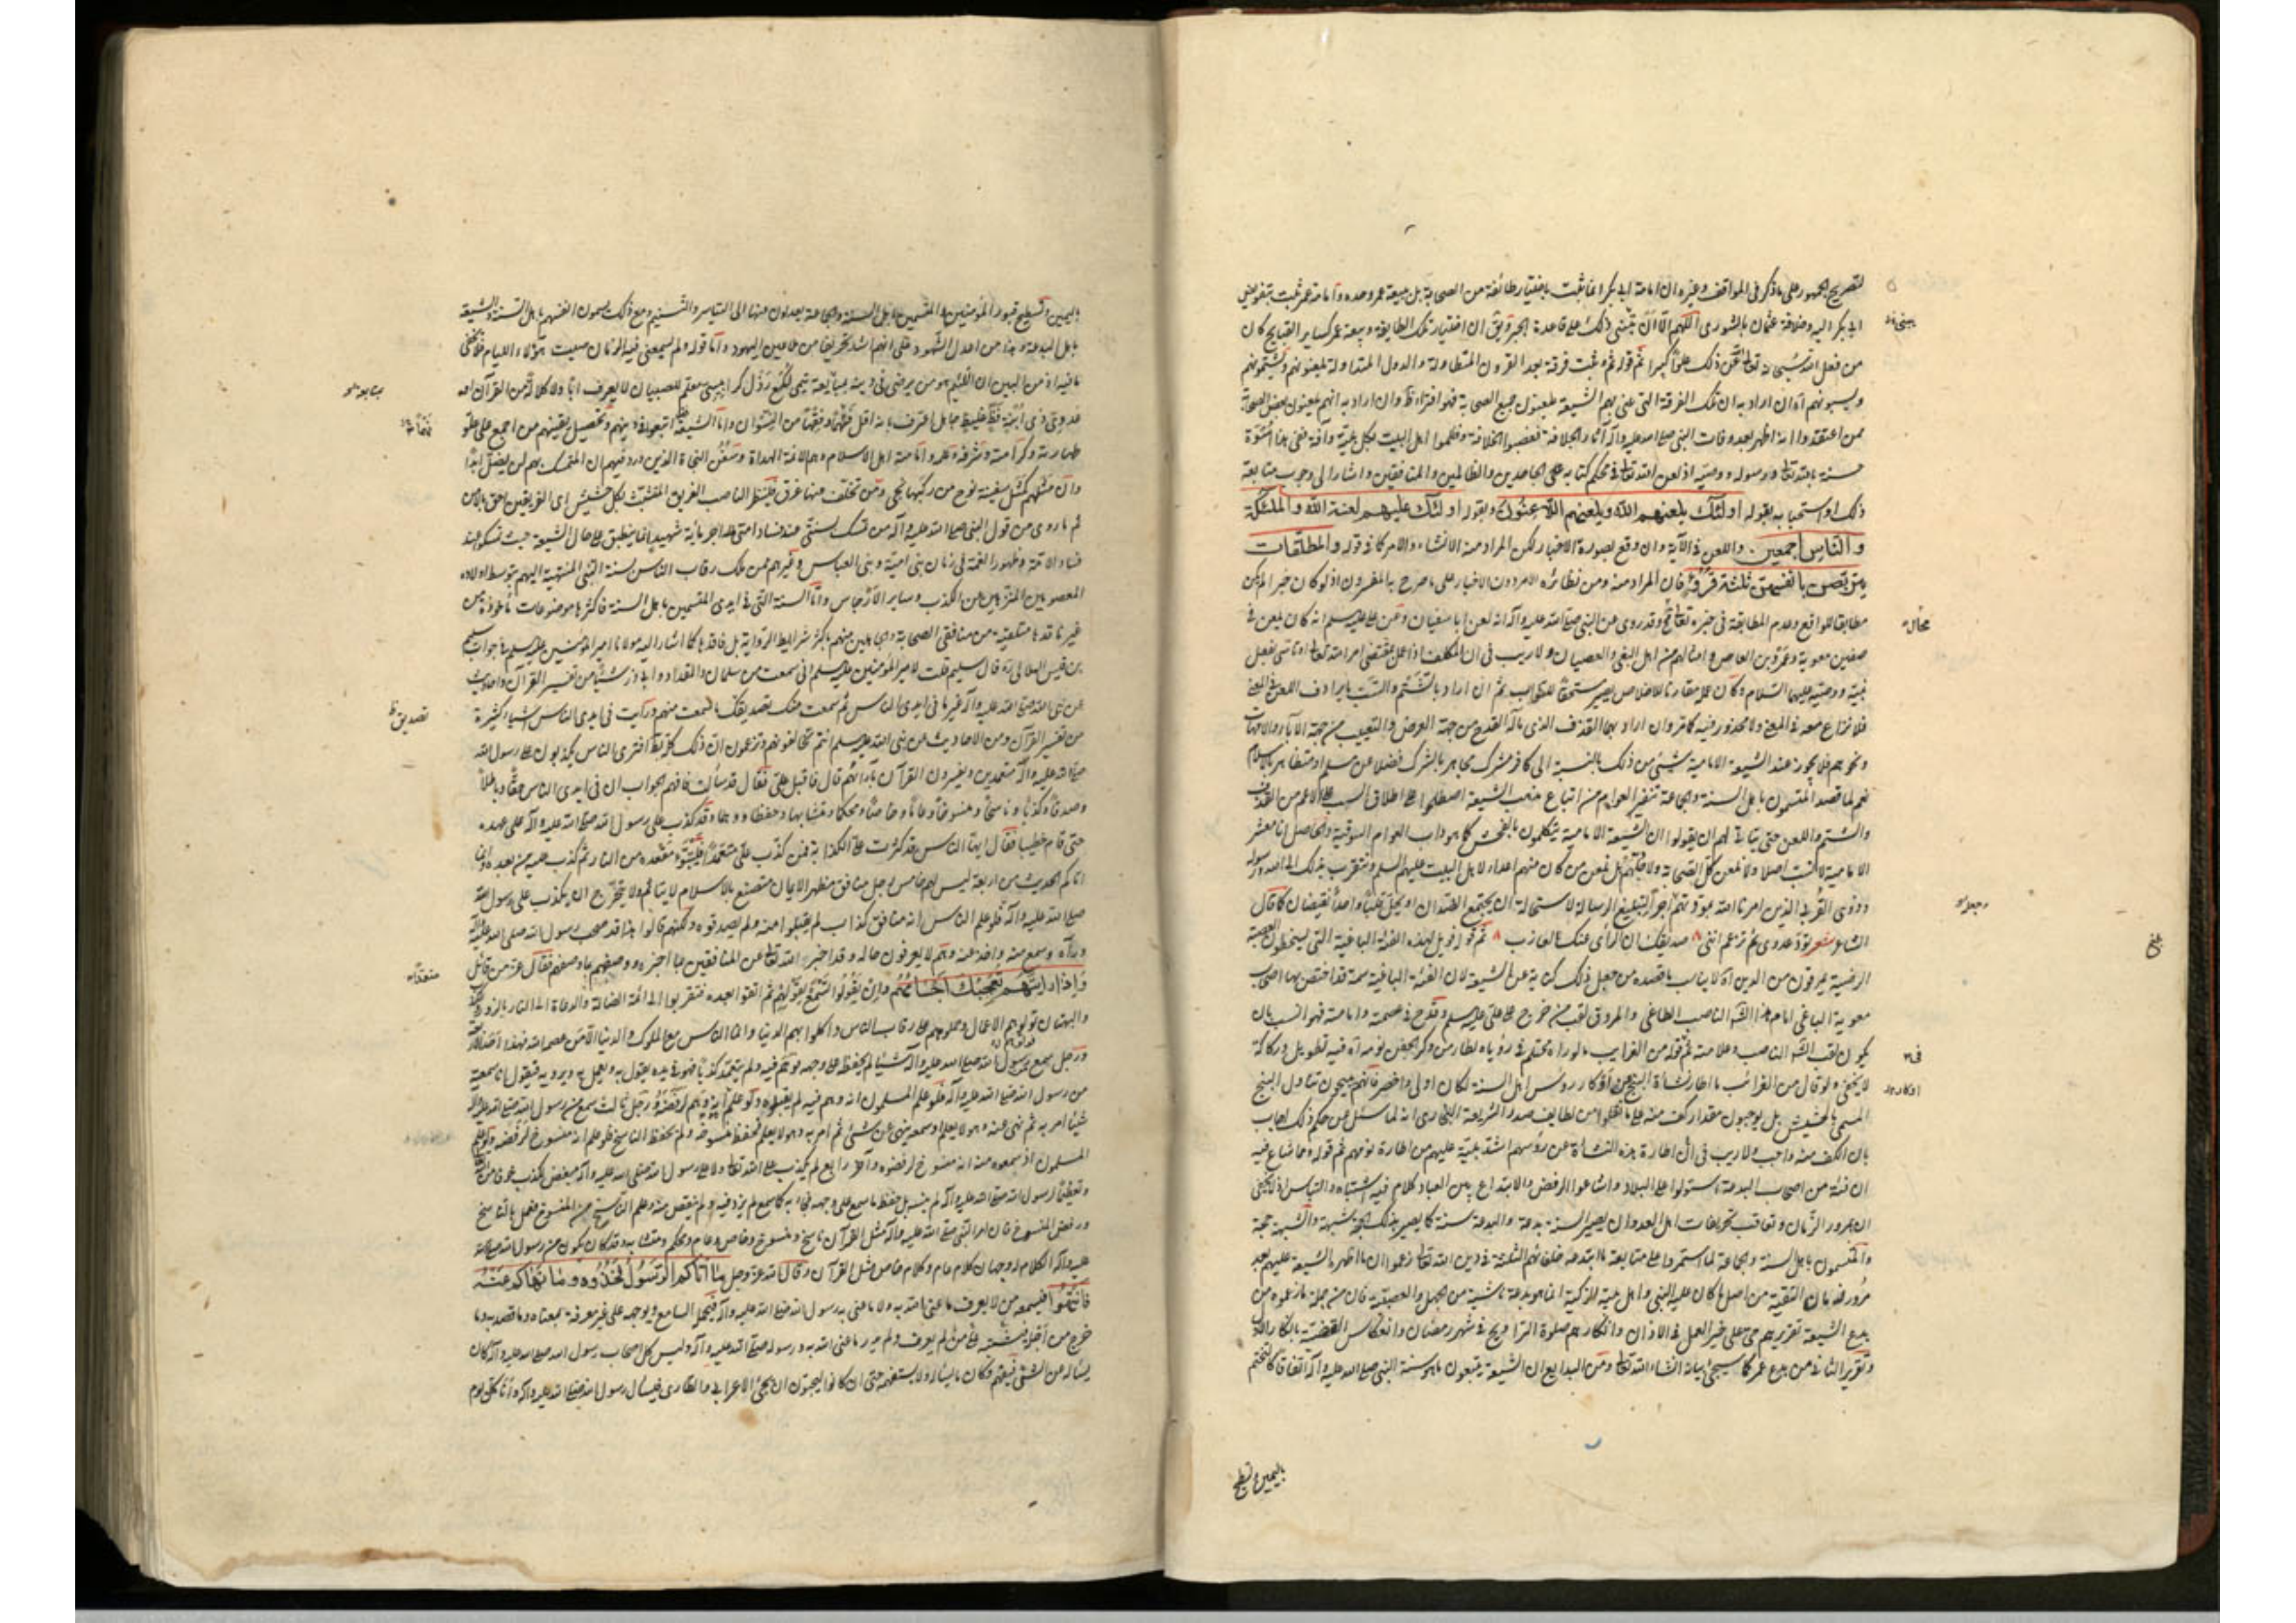 لتصريح الجمهور على ما ذكر فى المواقف وغيره ان امامة ابى بكر انما ثبت باختيار طائفة من الصحابة بل ببيعة عمر وحده وامامة عمر ثبت بتفويض
ابى بكر اليه وخلافة عثمان بالشورى اللهم الا ان يبنى ذلك على قاعدة الجبر ويق ان اختيار تلك الطايفة وبيعة عمر كساير القبايح كان
من فعل الله سبحانه تعالى عن ذلك علوا كبيرا ثم قوله ثم نبت فرقة بعد القرون المتطاولة والدول المتداولة يلعنونهم ويشتمونهم
ويسبونهم اه ان اراد به ان تلك الفرقة التى عنى بهم الشيعة يلعنون جميع الصحابة فهو افتراء ظ وان اراد به انهم يلعنون بعض الصحابة
ممن اعتقدوا انه اظهر بعد وفات النبى صلى الله عليه وآله آثار الجلافة فغصبوا الخلافة وظلموا اهل البيت بكل بلية وآفة ففى هذا اسوة
حسنة بالله تعالى ورسوله ووصيه اذ لعن الله تعالى فى محكم كتابه على الجاحدين والظالمين والمنافقين واشار الى وجوب متابعة
ذلك او استحبابه بقوله اولئك يلعنهم الله ويلعنهم اللاعنون وبقوله اولئك عليهم لعنة الله والملئكة
والناس اجمعين. واللعن فى الآية وان وقع بصورة الاخبار لكن المراد منه الانشاء والامر كما فى قوله والمطلقات
يتربصن بانفسهن ثلثة قروء فان المراد منه ومن نظائره الامر دون الاخبار على ما صرح به المفسرون اذ لو كان خبرا لم يكن
مطابقا للواقع وعدم المطابقة فى خبره تعالى مح وقد روى عن النبى صلى الله عليه وآله انه لعن ابا سفيان وعن على عليه السلم انه كان يلعن فى
صفين معوية وعمرو بن العاص وامثالهم من اهل البغى والعصيان ولا ريب فى ان المكلف اذا عمل بمقتضى امر الله تعالى او تأسى بفعل
نبيه ووصيه عليهما السلام وكان عمله مقارنا للاخلاص يصير مستحقا للثواب ثم ان اراد بالشتم والسب ما يرادف اللعن فى المعنى
فلا نزاع معه فى المعنى ولا محذور فيه كما مر وان اراد بهما القذف الذى مآله القدح من جهة العرض والتعييب من جهة الآباء والامهات
ونحوهم فلا يجوز عند الشيعة الامامية شيئ من ذلك بالنسبة الى كافر مشرك مجاهر بالشرك فضلا عن مسلم او متظاهر بالاسلام
نعم لما قصد المتسمون باهل السنة والجماعة تنفير العوام من اتباع مذهب الشيعة اصطلحوا على اطلاق السب على الاعم من القذف
والشتم واللعن حتى يتأتى لهم ان يقولوا ان الشيعة الامامية يتكلمون بالفحش كما هو داب العوام السوقية والحاصل انا معشر
الامامية لا نسب اصلا ولا نلعن كل الصحابة ولا جلهم بل نلعن من كان منهم اعداء لاهل البيت عليهم السلم ونتقرب بذلك الى الله ورسوله
وذوى القربى الذين امرنا الله بمودتهم اجرا لتبليغ الرسالة لاستحالة ان يجتمع الضدان او يحل قلبا واحدا نقيضان كما قال
الشاعر شعر تود عدوى ثم تزعم اننى صديقك ان الرأى عنك لعازب ثم قوله فويل لهذه الفئة الباغية التى يسخطون العصبة
الرضية يمرقون من الدين اه لا يناسب ما قصده من جعل ذلك كناية عن الشيعة لان الفئة الباغية سمة قد اختص بها اصحاب
معوية الباغى امام هذا الناصب الطاغى والمروق لقب من خرج على على عليه السلم وقدح فى عصمته وامامته فهو انسب بان
يكون لقب الناصب وعلامته ثم قوله من الغرايب ما لو راه محتلم فى رؤياه لطار من وكر الجفن نومه اه فيه تطويل وركاكة
لا يخفى ولو قال من الغرائب ما اطار نشأة البنج من اوكار رؤس اهل السنة لكان اولى واخصر فانهم يبيحون تناول البنج
المسمى بالحشيش بل يوجبون مقدار كف منه على ما نقلوا من لطايف صدر الشريعة البخارى انه لما سئل عن حكم ذلك اجاب
بان الكف منه واجب ولا ريب فى ان اطارة هذه النشأة عن رؤسهم اشد بلية عليهم من اطارة نومهم ثم قوله ومما شاع فيه
ان فئة من اصحاب البدعة استولوا على البلاد واشاعوا الرفض والابتداع بين العباد كلام فيه اشتباه والتباس اذ لا يخفى
ان بمرور الزمان وتعاقب تحريفات اهل العدوان يصير السنة بدعة والبدعة سنة كما يصير بذلك الحجة شبهة والشبهة حجة
والمتسمون باهل السنة والجماعة لما استمروا على متابعة ما ابتدعه خلفائهم الثلثة فى دين الله تعالى زعموا ان ما اظهره الشيعة عليهم بعد
مرور زمان التقية من اصل ما كان عليه النبى واهل بيته الزكية انما هو بدعة ناشية من الجهل والعصبية فان من جملة ما زعموه من
بدع الشيعة تقريرهم حى على خير العمل فى الاذان وانكارهم صلوة التراويح فى شهر رمضان وانعكاس القضية بانكار الاول
وتقرير الثانى من بدع عمر كما سيجئ بيانه انشاء الله تعالى ومن البدايع ان الشيعة يتبعون ما هو سنة النبى صلى الله عليه وآله اتفاقا كالتختم
باليمين وتسطيح
باليمين وتسطيح قبور المؤمنين والمتسمين باهل السنة والجماعة يعدلون عنها الى التياسر والتسنيم ومع ذلك يسمون انفسهم باهل السنة والشيعة
باهل البدعة وهذا من اعدل الشهود على انهم اشد تحريفا من ملاعين اليهود واما قوله ولم يسعنى فيه الزمان
ما فيه اذ من البين ان اللئيم هو من يرضى فى دينه بمبايعة تيمى
طهارته وكرامته وشرفه وعلمه وامامته اهل الاسلام وهم الائمة الهداة وسفن النجاة الذين ورد فيهم ان المتمسك بهم لن يضل ابدا
وان مثلهم كمثل سفينة نوح من ركبها نجى ومن تخلف عنها غرق فلينظر الناصب الغريق المتشبث بكل حشيش اى الفريقين احق بالامن
ثم ما روى من قول النبى صلى الله عليه وآله من تمسك بسنتى عند فساد امتى فله اجر مائة شهيد انما ينطبق على حال الشيعة حيث تمسكوا عند
فساد الامة وظهور الغمة فى زمان بنى امية وبنى العباس وغيرهم ممن ملك رقاب الناس بسنة النبى المنتهية اليهم بتوسط اولاده
المعصومين المنزهين عن الكذب وساير الارجاس واما السنة التى فى ايدى المتسمين باهل السنة فاكثرها موضوعات مأخوذة من
غير ناقدها متلقية من منافقى الصحابة والجاهلين منهم باكثر شرايط الرواية بل فاقدها كما اشار اليه مولانا امير المؤمنين عليه السلم فى جواب سليم
بن قيس الهلالى ره قال سليم قلت لامير المؤمنين عليه السلم انى سمعت من سلمان والمقداد وابى ذر شيئا من تفسير القرآن واحاديث
عن نبى الله صلى الله عليه وآله غير ما فى ايدى الناس ثم سمعت منك تصديق ما سمعت منهم ورأيت فى ايدى الناس اشياء كثيرة
من تفسير القرآن ومن الاحاديث عن نبى الله عليه السلم انتم تخالفونهم وتزعمون ان ذلك كله باطل افترى الناس يكذبون على رسول الله
صلى الله عليه وآله متعمدين ويفسرون القرآن بآرائهم قال فاقبل على فقال قد سألت فافهم الجواب ان فى ايدى الناس حقا وباطلا
وصدقا وكذبا وناسخا ومنسوخا وعاما وخاصا ومحكما ومتشابها وحفظا ووهما وقد كذب على رسول الله صلى الله عليه وآله على عهده
حتى قام خطيبا فقال ايها الناس قد كثرت على الكذابة فمن كذب على متعمدا فليتبوء مقعده من النار ثم كذب عليه من بعده انما
اتاكم الحديث من اربعة ليس لهم خامس رجل منافق مظهر الايمان متصنع بالاسلام لا يتأثم ولا يتحرج ان يكذب على رسول الله
صلى الله عليه وآله فلو علم الناس انه منافق كذاب لم يقبلوا منه ولم يصدقوه ولكنهم قالوا هذا قد صحب رسول الله صلى الله عليه وآله
ورآه وسمع منه واخذ عنه وهم لا يعرفون حاله وقد اخبر الله تعالى عن المنافقين بما اخبره ووصفهم بما وصفهم فقال عز من قائل
واذا رايتهم تعجبك اجسامهم وان يقولوا تسمع لقولهم ثم بقوا بعده فتقربوا الى ائمة الضالة والدعاة الى النار بالزور
والبهتان فولوهم الاعمال وحملوهم على رقاب الناس واكلوا بهم الدنيا وانما الناس مع الملوك والدنيا الا من عصم الله فهذا احد الاربعة
ورجل سمع من رسول الله صلى الله عليه وآله شيئا لم يحفظه على وجهه فوهم فيه ولم يتعمد كذبا فهو فى يده يقول به ويعمل به ويرويه فيقول انا سمعته
من رسول الله صلى الله عليه وآله فلو علم المسلمون انه وهم فيه لم يقبلوه ولو علم انه وهم لرفضه ورجل ثالث سمع من رسول الله صلى الله عليه وآله
شيئا امر به ثم نهى عنه وهو لا يعلم او سمعه ينهى عن شئ ثم امر به وهو لا يعلم فحفظ منسوخه ولم يحفظ الناسخ فلو علم انه منسوخ لرفضه ولو علم
المسلمون اذ سمعوه منه انه منسوخ لرفضوه وآخر رابع لم يكذب على الله تعالى ولا على رسول الله صلى الله عليه وآله مبغض للكذب خوفا من الله
وتعظيما لرسول الله صلى الله عليه وآله لم ينسه بل حفظ ما سمع على وجهه فجاء به كما سمع لم يزد فيه ولم ينقص منه وعلم الناسخ من المنسوخ فعمل بالناسخ
ورفض المنسوخ فان امر النبى صلى الله عليه وآله مثل القرآن ناسخ ومنسوخ وخاص وعام ومحكم ومتشابه وقد كان يكون من رسول الله صلى الله
عليه وآله الكلام له وجهان كلام عام وكلام خاص مثل القرآن وقال الله عز وجل ما اتاكم الرسول فخذوه وما نهاكم عنه
فانتهوا فيسمعه من لا يعرف ما عنى الله به ولا ما عنى به رسول الله صلى الله عليه وآله فيحمله السامع ويوجهه على غير معرفة بمعناه وما قصد به وما
خرج من اجله فيشتبه على من لم يعرف ولم يدر ما عنى الله به ورسوله صلى الله عليه وآله وليس كل اصحاب رسول الله صلى الله عليه وآله كان
يسأله عن الشئ فيفهم وكان منهم من يسأله ولا يستفهمه حتى ان كانوا ليحبون ان يجئ الاعرابى والطارى فيسأل رسول الله صلى الله عليه وآله وانا كل يوم